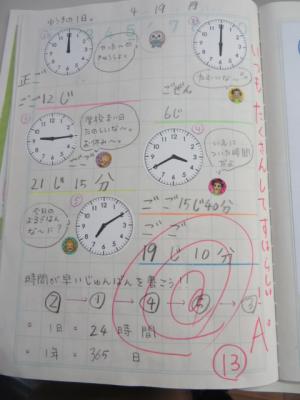 ゆうきの1日。
4 19 19
①
正ご
ごご12じ
②
ねむいな〜。
ごぜん
6じ
③
学校まい日
たのしいな〜。
お休み〜。
21じ15分
④
いえに
ついた時間
だよ
ごご15じ40分
⑤
今日の
よるごはん
なーに?
ごご
19じ10分
時間が早いじゅんばんを書こう!!
②→①→④→⑤→③
=1日=24時間
=1年=365日
いつもたくさんしてすばらしい!!
A°
13